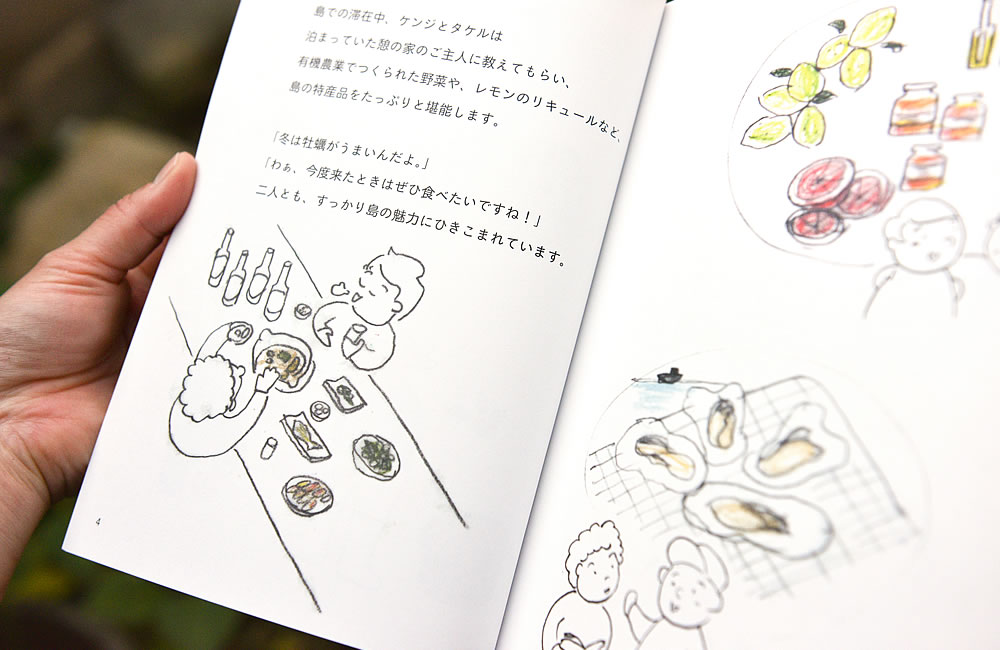 島での滞在中、ケンジとタケルは
泊まっていた憩の家のご主人に教えてもらい、
有機農業でつくられた野菜や、レモンのリキュールなど、
島の特産品をたっぷりと堪能します。
「冬は牡蠣がうまいんだよ。」
「わぁ、今度来たときはぜひ食べたいですね！」
二人とも、すっかり島の魅力にひきこまれています。
4